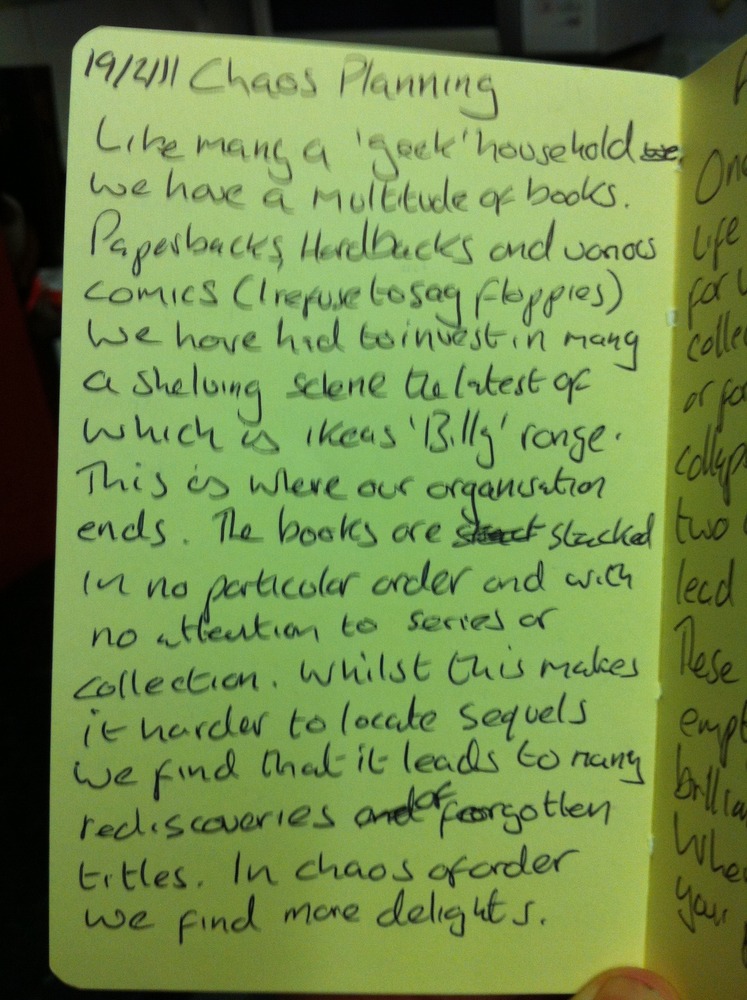 19/2/11 Chaos Planning
Like many a 'geek' household we.
we have a multitude of books.
Paperbacks, Hardbacks and various
comics (I refuse to say floppies)
We have had to invest in many
a shelving scheme the latest of
which is ikeas 'Billy' range.
This is where our organisation
ends. The books are stacked
in no particular order and with
no attention to series or
collection. Whilst this makes
it harder to locate sequels
we find that it leads to many
rediscoveries of forgotten
titles. In chaos of order
we find more delights.
On
Life
for
colle
or fo
collap
two
lead
These
empt
brillia
Whe
your